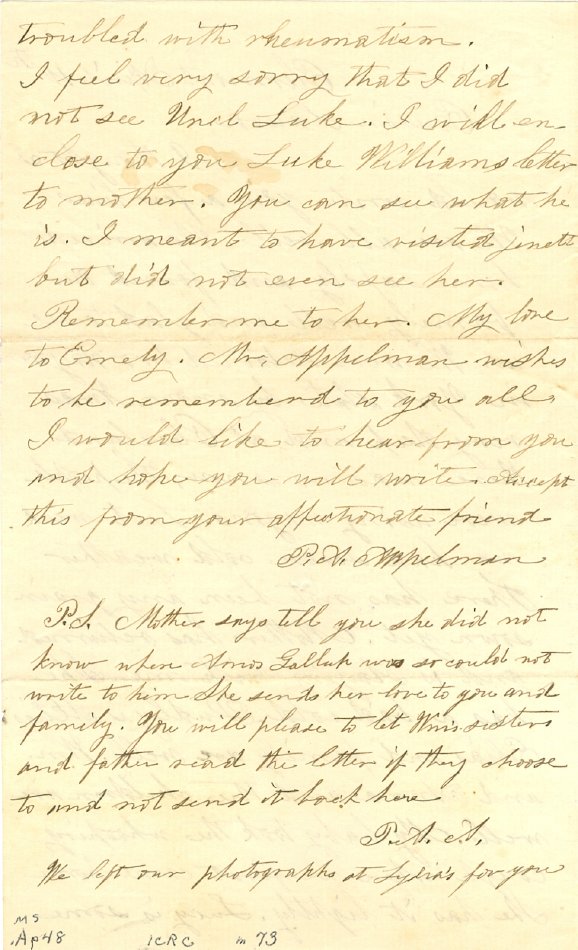 troubled with rheumatism.
I feel very sorry that I did
not see Uncl Luke. I will en
close to you Luke Williams letter
to mother. You can see what he
is. I meant to have visited jinett
but did not even see her.
Remember me to her. My love
to Emely. Mr. Appelman wishes
to be rememberd to you all.
I would like to hear from you
and hope you will write. Accept
this from your affectionate friend
P. A. Appelman
P.S. Mother says tell you she did not
know where Amos Gallup was so could not
write to him She sends her love to you and
family. You will please to let Wm's sisters
and father read the letter if they choose
to and not send it back here
P. A. A.
We left our photographs at Lydia's for you
MS
Ap48 ICRC m 73